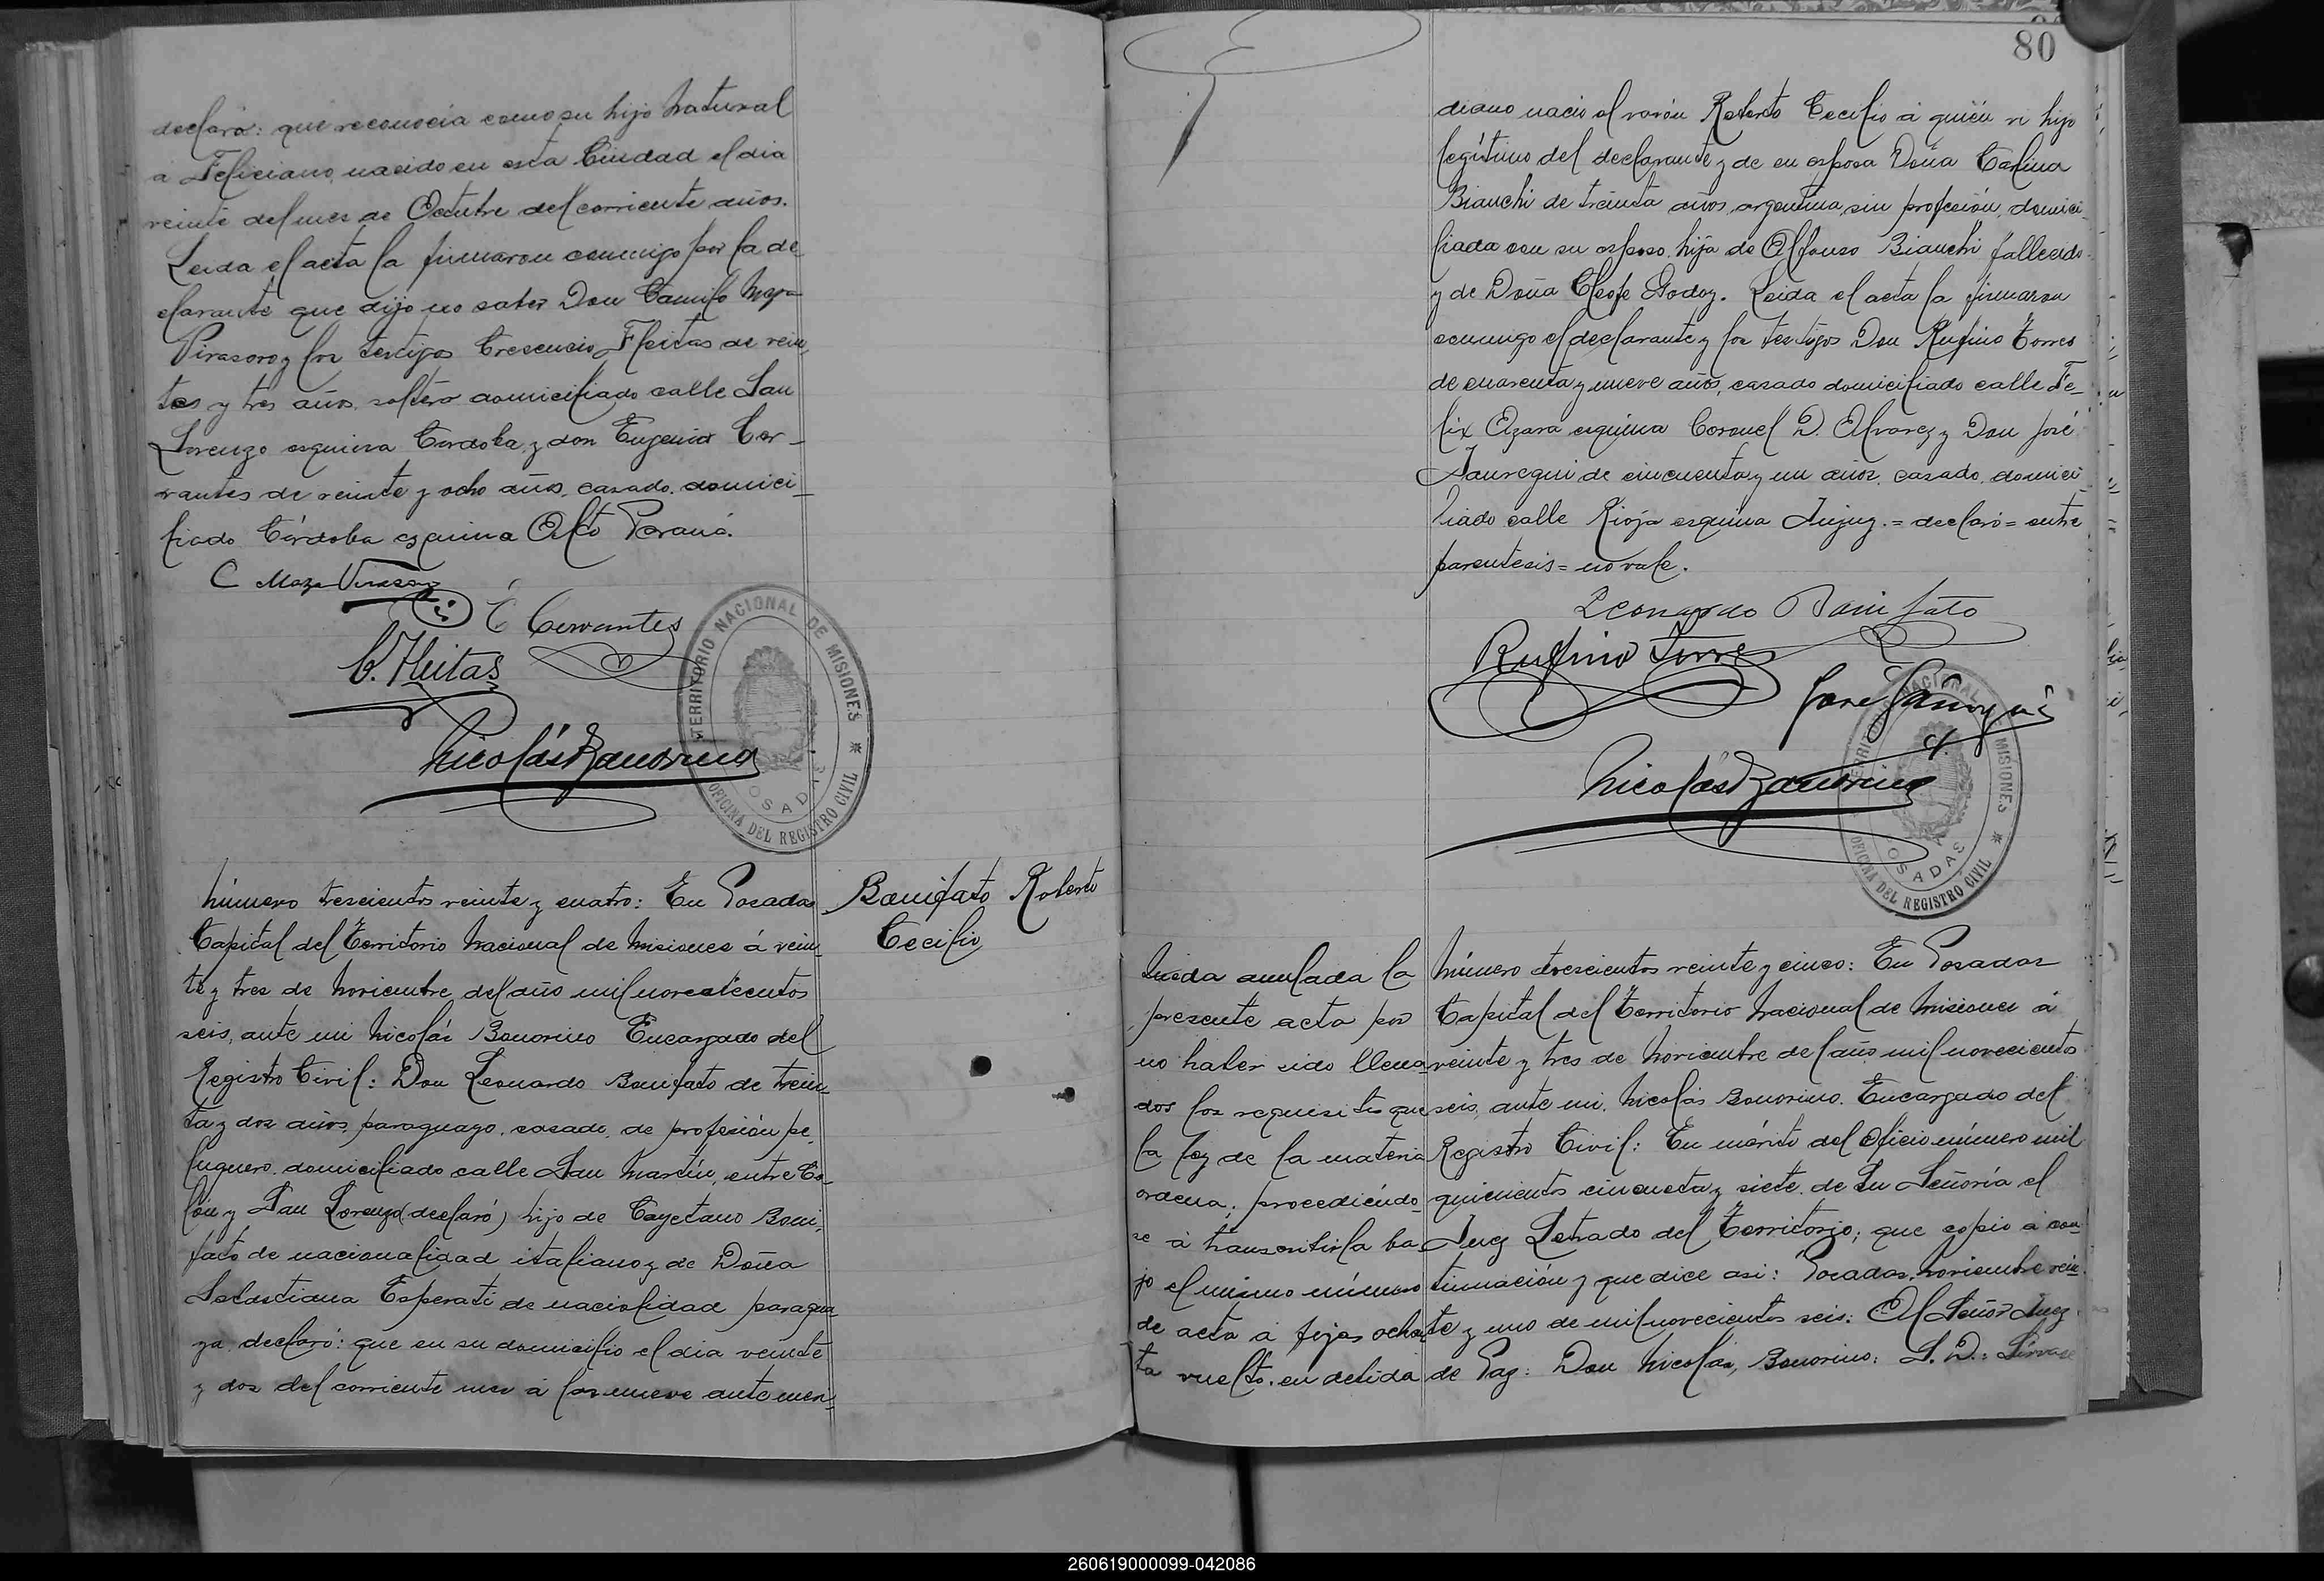 declaró: que reconocía como su hijo natural
á Feliciano, nacido en esta Ciudad el dia
veinte del mes de Octubre del corriente años.
Leida el acta la firmaron conmigo por la de
clarante que dijo no saber Don Camilo Maza
Virasoro y los testigos Crescencio Fleitas de vein
tes y tres años, soltero domiciliado calle San
Lorenzo esquina Córdoba, y don Eugenio Cer-
vantes de veinte y ocho años, casado, domici-
liado Córdoba esquina Alto Paraná.
C Maza Virasoro
E Cervantes
C. Fleitas
Nicolás Bonorino
TERRITORIO NACIONAL DE MISIONES
POSADAS
OFICINA DEL REGISTRO CIVIL
Número trescientos veinte y cuatro: En Posadas
Capital del Territorio Nacional de Misiones á vein
te y tres de Noviembre del año mil novecientos
seis, ante mi Nicolás Bonorino Encargado del
Registro Civil: Don Leonardo Bonifato de trein-
ta y dos años, paraguayo, casado, de profesión pe
luquero, domiciliado calle San Martín, entre Co-
lón y San Lorenzo (declaró) hijo de Cayetano Boni-
fato de nacionalidad italiano y de Doña
Sebastiana Esperati de naciolidad paragua
ya declaró: que en su domicilio el dia veinte
y dos del corriente mes á las nueve ante meri-
Bonifato Roberto
Cecilio
80
diano nació el varón Roberto Cecilio á quién vi hijo
legítimo del declarante y de su esposa Doña Carlina
Bianchi de treinta años, argentina, sin profesión, domici-
liada con su esposo, hija de Alfonso Bianchi fallecido
y de Doña Cleofe Godoy. Leida el acta la firmaron
conmigo el declarante y los testigos Don Rufino Torres
de cuarenta y nueve años, casado domiciliado calle Fe-
lix Azara esquina Coronel D. Alvarez y Don José
Jauregui de cincuenta y un años, casado, domici-
liado calle Rioja esquina Jujuy. = declaró = entre
parentesis = no vale.
Leonardo Bonifato
Rufino Torres
José Jauregui
Nicolás Bonorino
TERRITORIO NACIONAL DE MISIONES
POSADAS
OFICINA DEL REGISTRO CIVIL
Queda anulada la
presente acta por
no haber sido llena-
dos los requisitos que
la ley de la materia
ordena, procediéndo
se á transcribirla ba
jo el mismo número
de acta á fojas ochen
ta vuelta, en debida
Número trescientos veinte y cinco: En Posadas
Capital del Territorio Nacional de Misiones á
veinte y tres de Noviembre del año mil novecientos
seis, ante mi, Nicolás Bonorino. Encargado del
Registro Civil: En mérito del Oficio número mil
quinientos cincuenta y siete, de Su Señoría el
Juez Letrado del Territorio; que copio á con-
tinuación y que dice asi: Posadas, noviembre vein-
te y uno de mil novecientos seis: Al Señor Juez
de Paz: Don Nicolás, Bonorino: S. D.: Sirvase
260619000099-042086